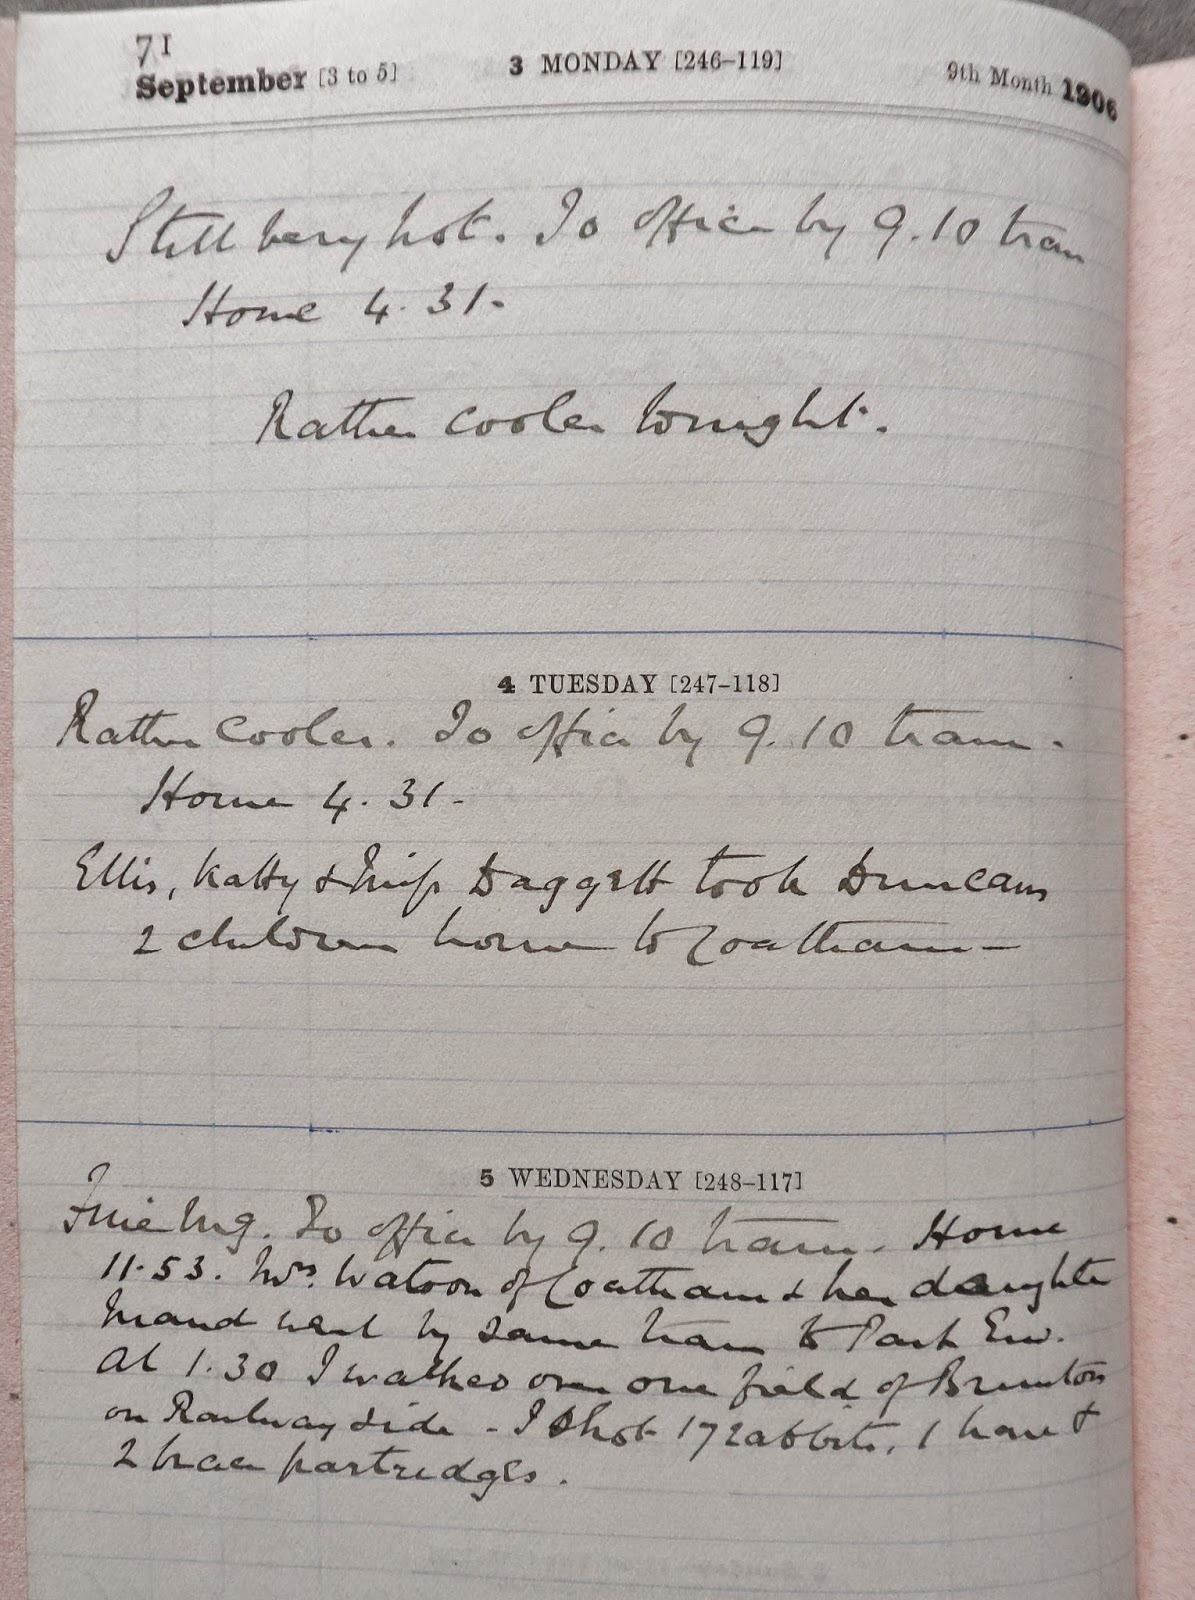 71
September [3 to 5] 3 MONDAY [246–119] 9th Month 1906
Still very hot. To office by 9.10 train
Home 4.31-
Rather cooler tonight.
4 TUESDAY [247–118]
Rather cooler. To office by 9.10 train-
Home 4.31-
Ellis, Katty & Miss Daggett took Duncans
2 children home to Coatham-
5 WEDNESDAY [248–117]
Fine Mg. To office by 9.10 train. Home
11.53. Mrs. Watson of Coatham & her daughter
Maud went by same train to Park End.
At 1.30 I walked over one field of Brunton
on Railway side - I shot 17 rabbits, 1 hare &
2 brace partridges.